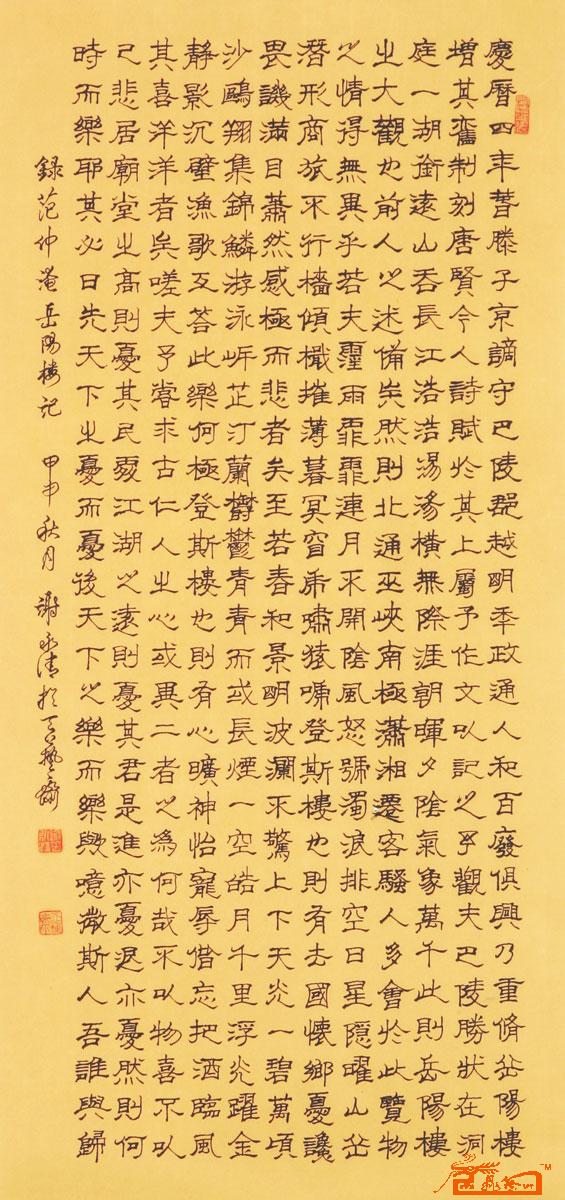 慶曆四年春滕子京謫守巴陵郡越明年政通人和百廢俱興乃重脩岳陽樓
增其舊制刻唐賢今人詩賦於其上屬予作文以記之予觀夫巴陵勝狀在洞
庭一湖銜遠山吞長江浩浩湯湯橫無際涯朝暉夕陰氣象萬千此則岳陽樓
之大觀也前人之述備矣然則北通巫峽南極瀟湘遷客騷人多會於此覽物
之情得無異乎若夫霪雨霏霏連月不開陰風怒號濁浪排空日星隱曜山岳
潛形商旅不行檣傾檝摧薄暮冥冥虎嘯猿啼登斯樓也則有去國懷鄉憂讒
畏譏滿目蕭然感極而悲者矣至若春和景明波瀾不驚上下天光一碧萬頃
沙鷗翔集錦鱗游泳岸芷汀蘭欝欝青青而或長煙一空皓月千里浮光躍金
靜影沉璧漁歌互答此樂何極登斯樓也則有心曠神怡寵辱偕忘把酒臨風
其喜洋洋者矣嗟夫予嘗求古仁人之心或異二者之為何哉不以物喜不以
己悲居廟堂之高則憂其民處江湖之遠則憂其君是進亦憂退亦憂然則何
時而樂耶其必曰先天下之憂而憂後天下之樂而樂歟噫微斯人吾誰與歸
録范仲淹岳陽樓記 甲申秋月 謝永清於藝齋